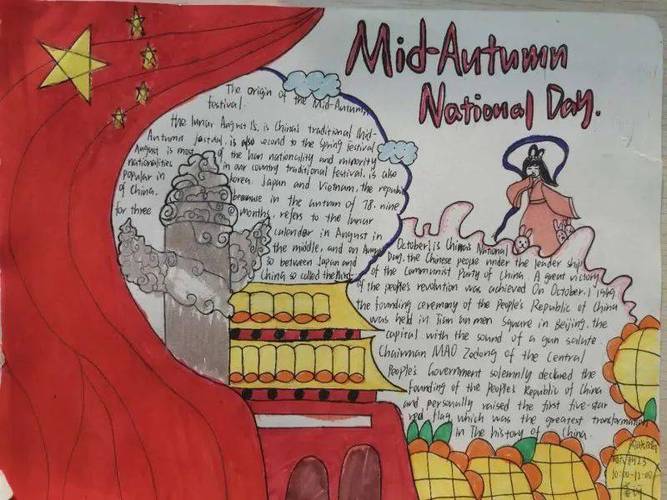 Mid-Autumn
National Day.
The origin of the Mid-Autumn
festival
the lunar August 15, is China's traditional Mid-
Autumn festival, is also second to the Spring festival
August is most of the han nationality and minority
nationalities in our country traditional festival, is also
popular in Korea Japan and Vietnam. the republic
of China. because in the autumn of 78. nine
for three months, refers to the lunar
calendar in August in
the middle, and on August
so between Japan and
China so called the third
October 1 is China's National
Day. the Chinese people under the leader ship
of the Communist Party of China. A great victory
of the people's revolution was achieved On October.1 1949,
the founding ceremony of the People's Republic of China
was held in Tian an men Square in Beijing. the
capital with the sound of a gun salute.
Chairman MAO Zedong of the Central
People's Government solemnly declared the
founding of the People's Republic of China
and personally raised the first five-star
red flag which was the greatest transformation
in The history of China.